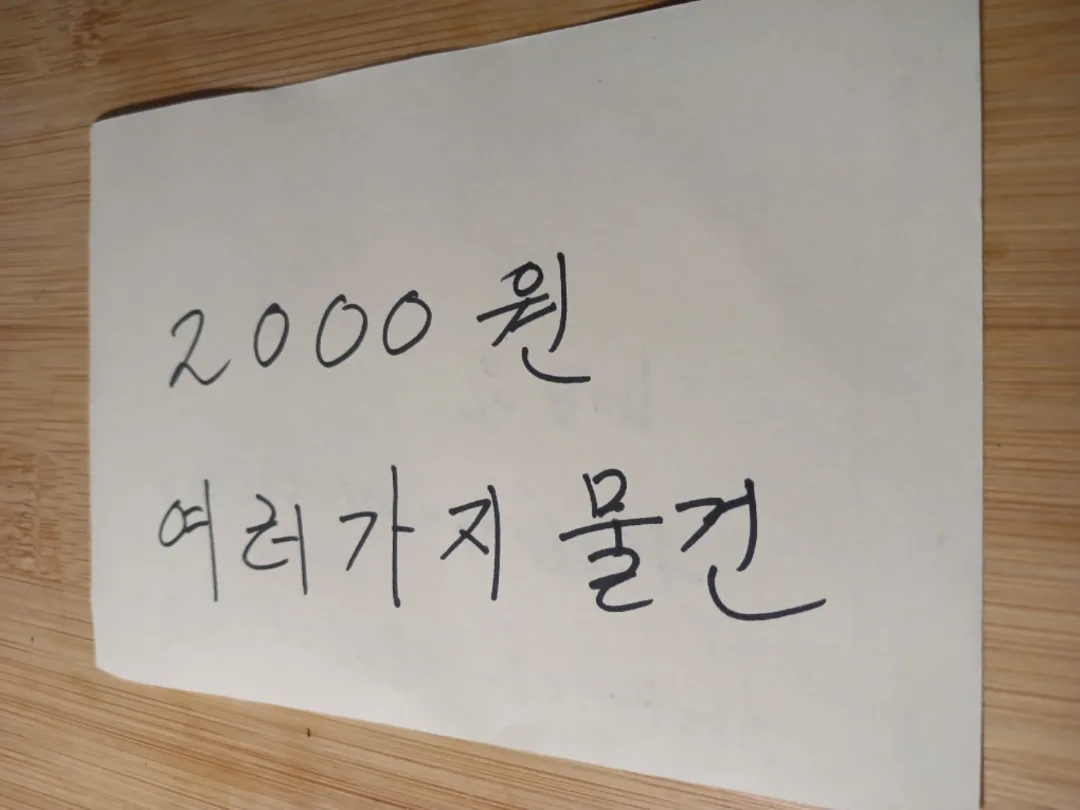 2000원
여러가지 물건